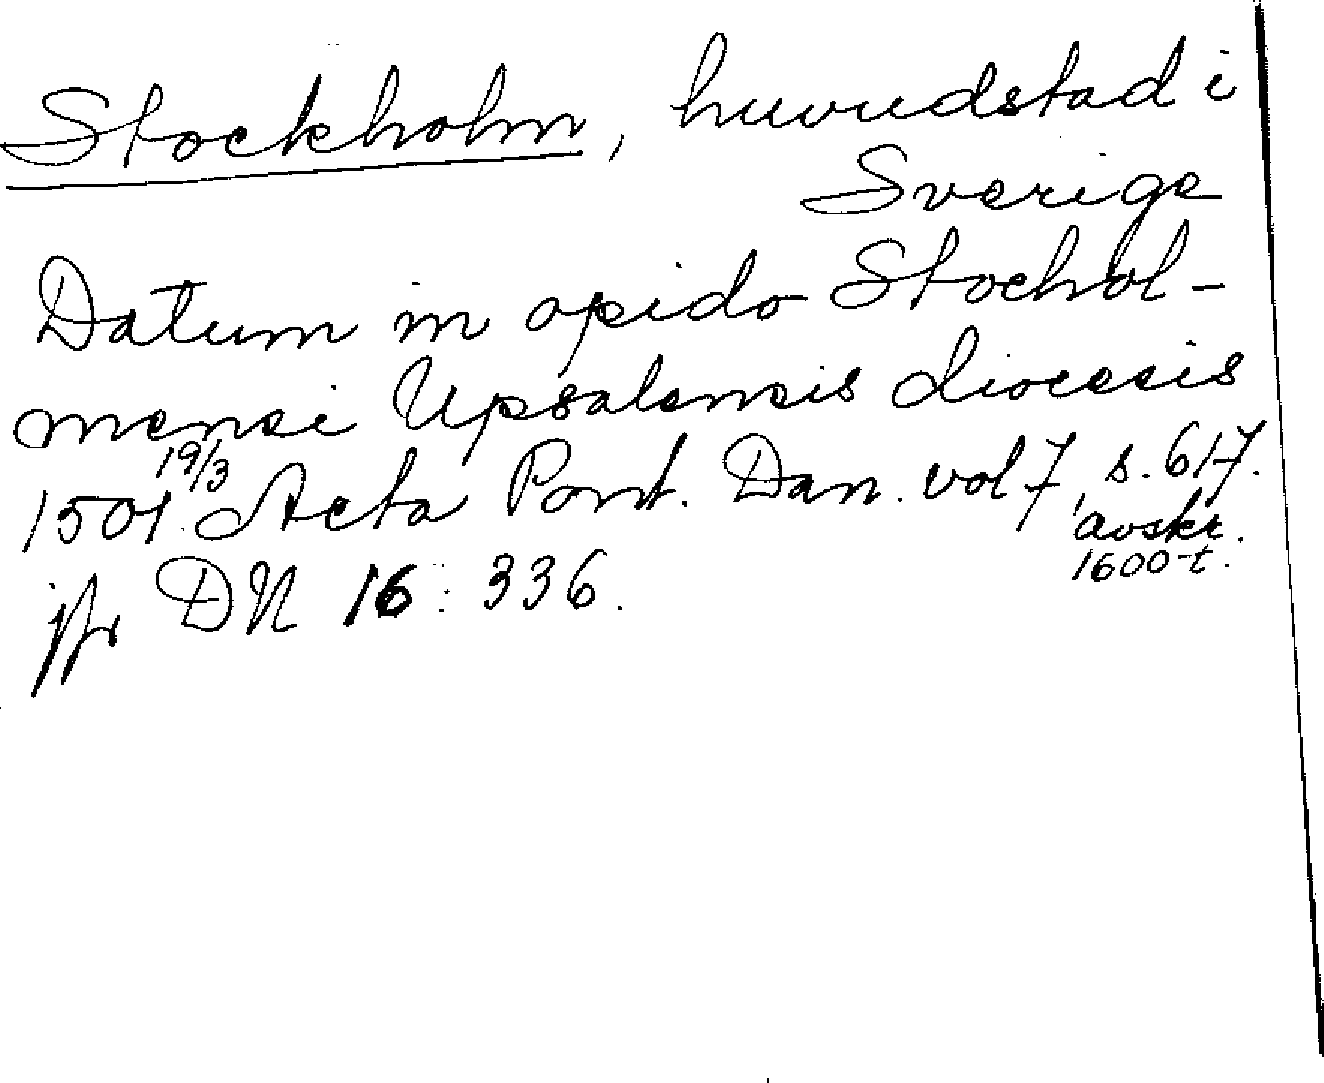 Stockholm, huvudstad i
Sverige
Datum in opido Stochol-
mensi Upsalensis diocesis
1501 19/3 Acta Pont. Dan. vol 7, s. 617.
avskr.
1600-t.
jfr DN 16: 336.